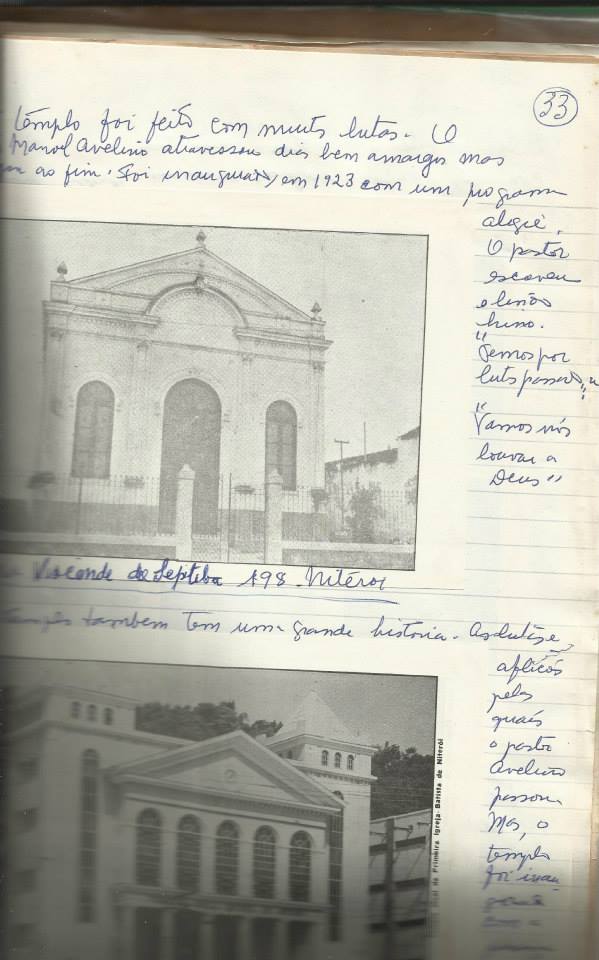 33
templo foi feito com muita lutas. O
Manoel Avelino atravessou dias bem amargos mas
ao fim. Foi inaugurado em 1923 com um programa
alegre.
O pastor
escreveu
o lindo
hino.
"Temos por
luts passado"
"Vamos nós
louvar a
Deus"
Visconde de Sepetiba 198. Niterói
também tem uma grande historia. As lutas e
aflicões
pelas
quais
o pastor
Avelino
passou.
Mas, o
templo
foi inau
da Primeira Igreja Batista de Niterói